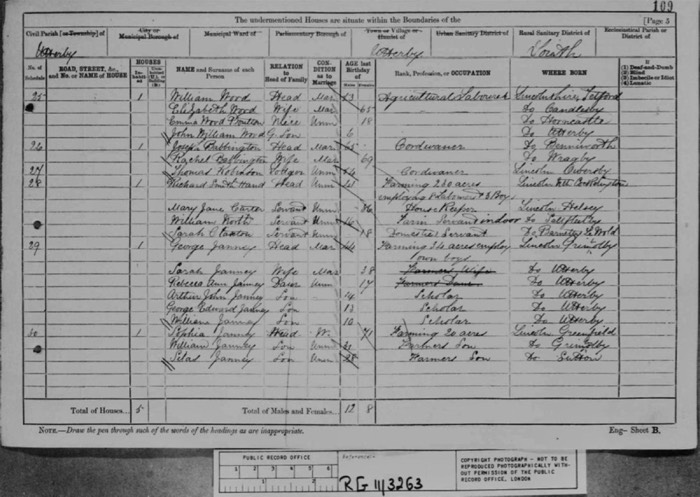 109
The undermentioned Houses are situate within the Boundaries of the [Page 5
Civil Parish [or Township] of City or Municipal Borough of Municipal Ward of Parliamentary Borough of Town or Village or Hamlet of Urban Sanitary District of Rural Sanitary District of Ecclesiastical Parish or District of
Utterby Utterby Louth
No. of Schedule ROAD, STREET, &c., and No. or NAME of HOUSE HOUSES NAME and Surname of each Person RELATION to Head of Family CONDITION as to Marriage AGE last Birthday of Rank, Profession, or OCCUPATION WHERE BORN If (1) Deaf-and-Dumb (2) Blind (3) Imbecile or Idiot (4) Lunatic
25 1 William Wood Head Mar Agricultural Labourer Lincolnshire Tetford
Elizabeth Wood Wife Mar 65 Do Candlesby
Emma Wood Niece Unm 18 Do Horncastle
John William Wood G. Son 6 Do Utterby
26 1 Joseph Babbington Head Mar 65 Cordwaner Do
Rachel Babbington Wife Mar 69 Do Wragby
27 Thomas Robinson Lodger Unm Cordwaner Lincoln
28 1 Richard Smith Head Unm Farming 230 acres Lincoln
employing 6 Labourers & 3 Boys
Mary Jane Servant Unm House Keeper Lincoln
William North Servant Unm Farm Servant indoor do
Sarah Servant Unm 18 Domestic Servant Do
29 1 George Janney Head Mar 44 Farming 34 acres employ Lincoln Grimolby
own boys
Sarah Janney Wife Mar 38 Farmers Wife Do Utterby
Rebecca Ann Janney Daur Unm 17 Farmers Daur Do Utterby
Arthur John Janney Son 14 Scholar Do Utterby
George Edward Janney Son 13 Scholar Do Utterby
William Janney Son 10 Scholar Do Utterby
30 1 Sophia Janney Head W. 71 Farming 20 acres Lincoln Greenfield
William Janney Son Unm Farmers Son do Grimolby
Silas Janney Son Unm 28 Farmers Son do Sutton
Total of Houses... 5 Total of Males and Females... 12 8
NOTE.—Draw the pen through such of the words of the headings as are inappropriate. Eng— Sheet B.
PUBLIC RECORD OFFICE Reference:—
1 2 3 4 5 6
1 2
RG 11/3263
COPYRIGHT PHOTOGRAPH - NOT TO BE
REPRODUCED PHOTOGRAPHICALLY WITH-
OUT PERMISSION OF THE PUBLIC
RECORD OFFICE, LONDON